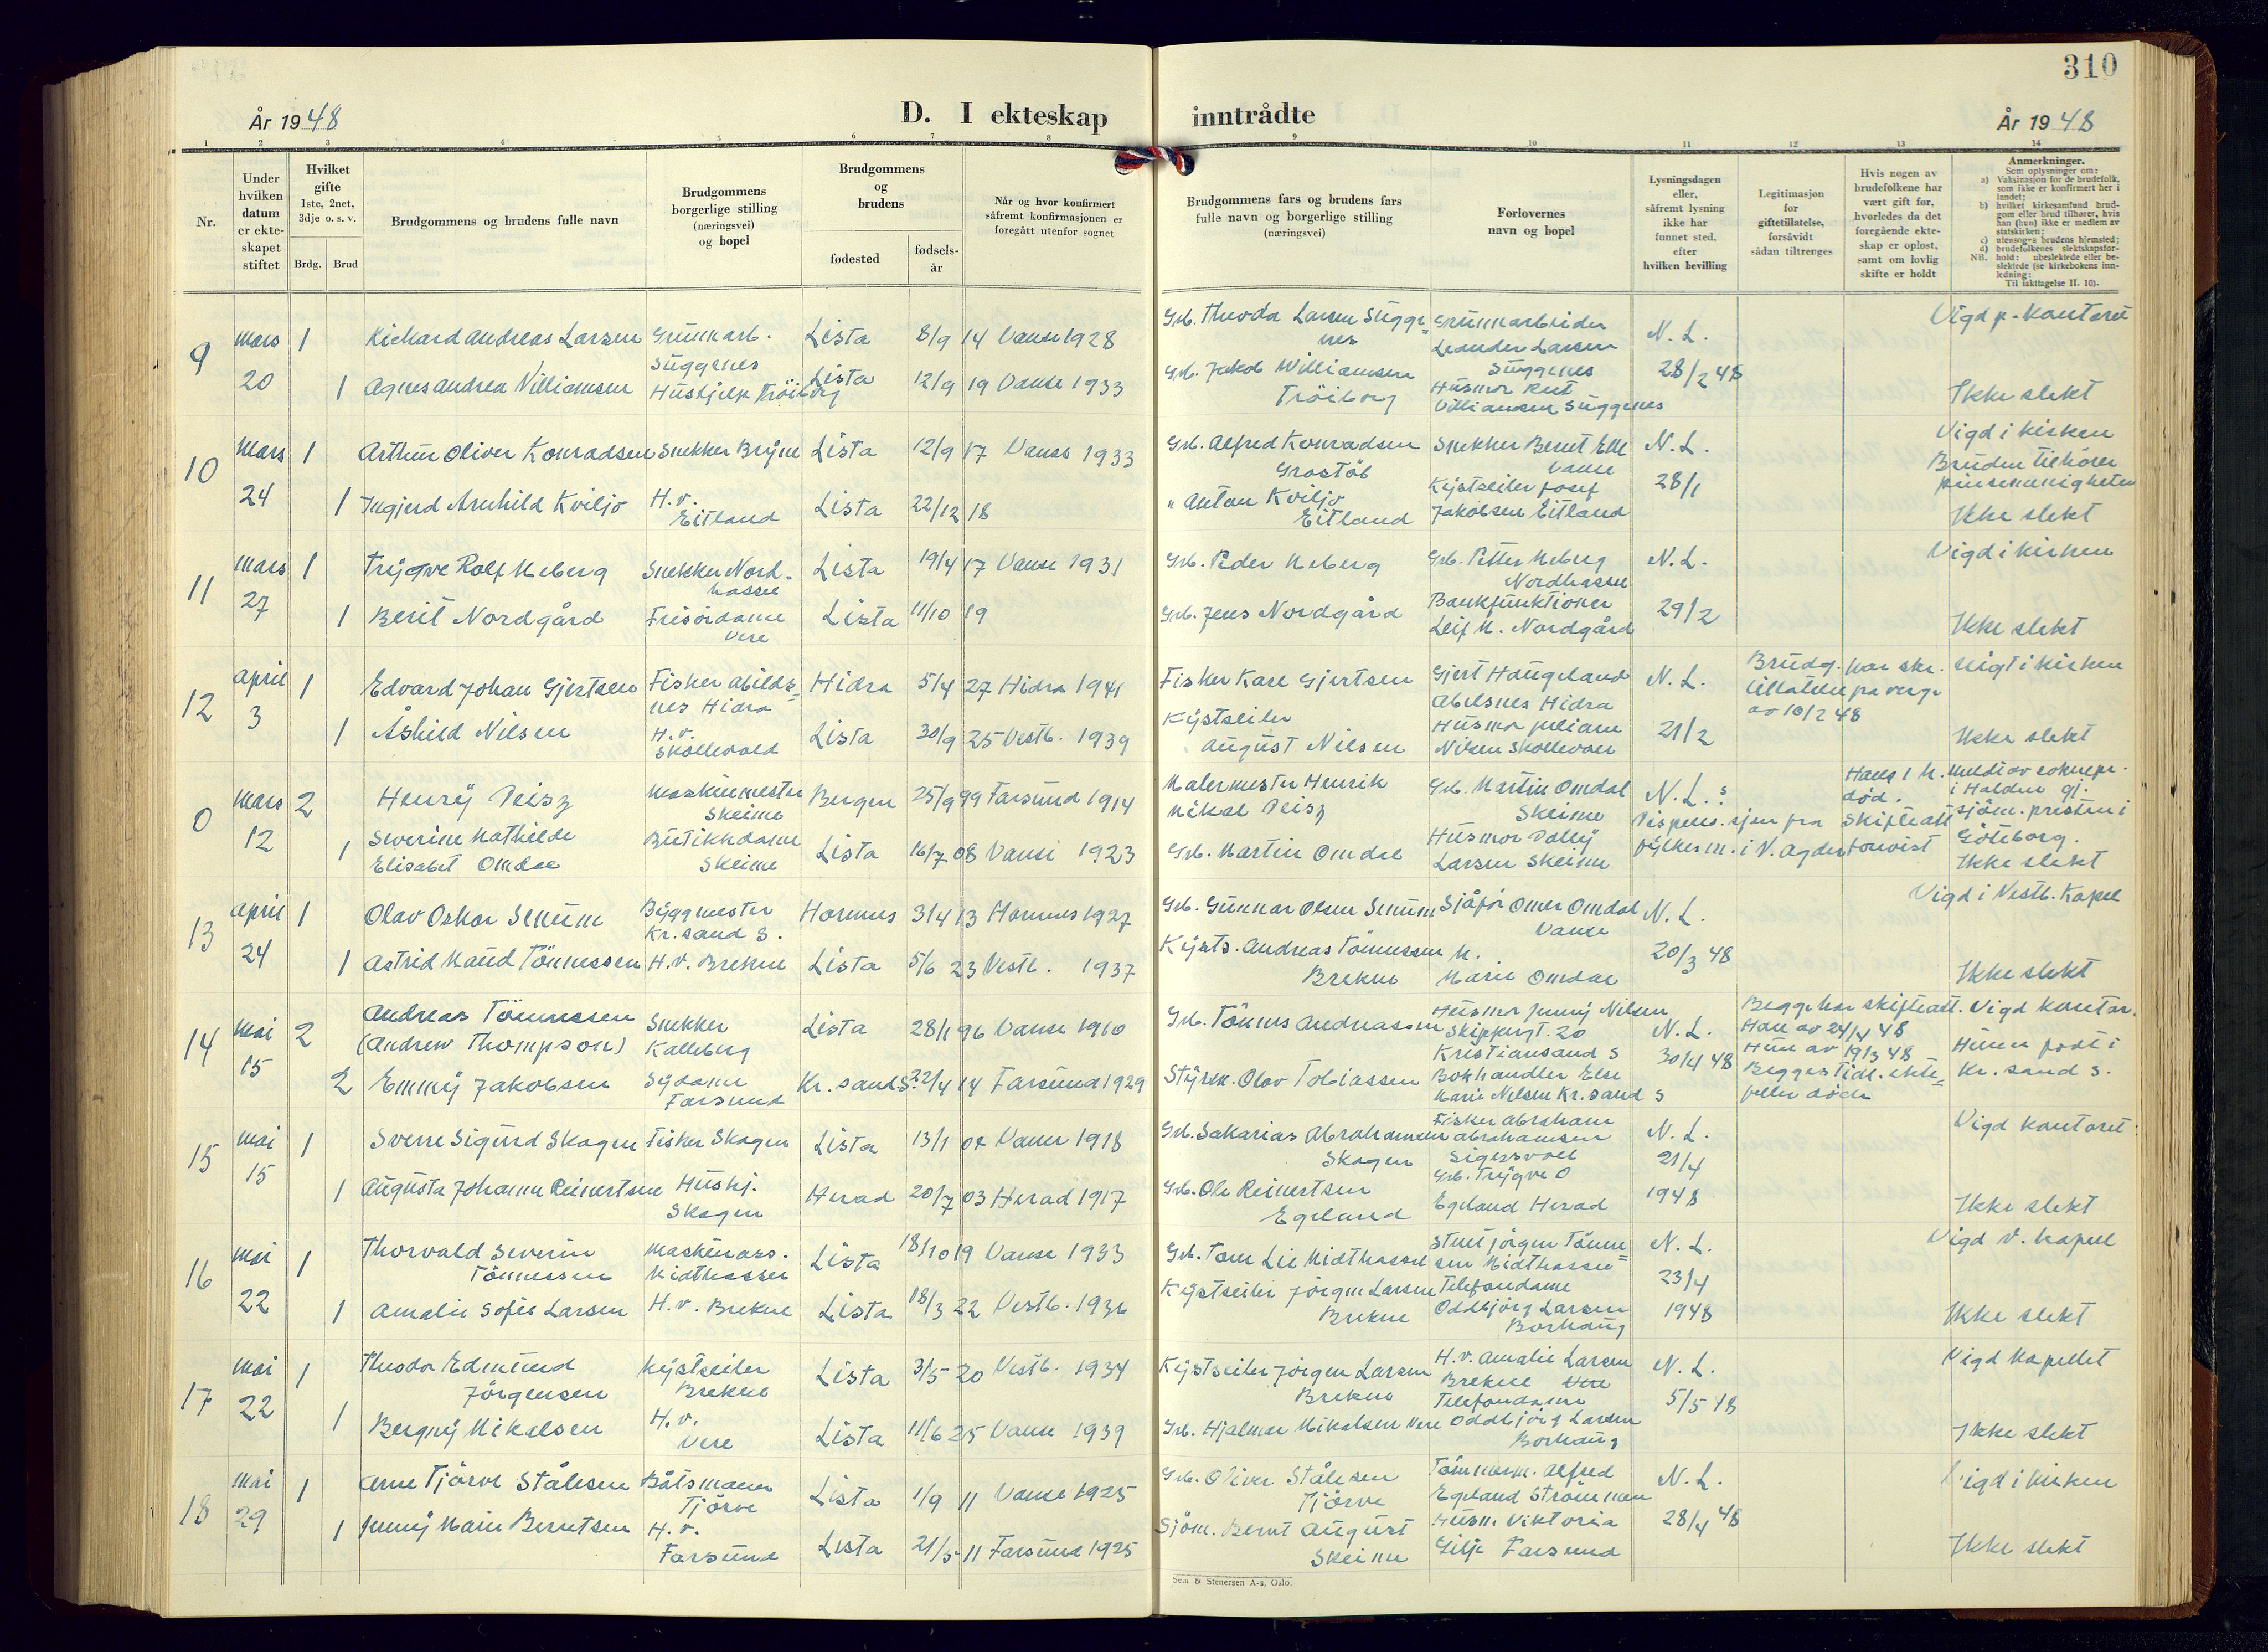 310
År 1948
D. I ekteskap inntrådte
År 1948
1 2 3 4 5 6 7 8 9 10 11 12 13 14
Nr.
Under
hvilken
datum
er ekte-
skapet
stiftet
Hvilket
gifte
1ste, 2net,
3dje o. s. v.
Brdg. Brud
Brudgommens og brudens fulle navn
Brudgommens
borgerlige stilling
(næringsvei)
og bopel
Brudgommens
og
brudens
fødested
fødsels-
år
Når og hvor konfirmert
såfremt konfirmasjonen er
foregått utenfor sognet
Brudgommens fars og brudens fars
fulle navn og borgerlige stilling
(næringsvei)
Forlovernes
navn og bopel
Lysningsdagen
eller,
såfremt lysning
ikke har
funnet sted,
efter
hvilken bevilling
Legitimasjon
for
giftetillatelse,
forsåvidt
sådan tiltrenges
Hvis nogen av
brudefolkene har
vært gift før,
hvorledes da det
foregående ekte-
skap er opløst,
samt om lovlig
skifte er holdt
Anmerkninger.
Som oplysninger om:
a) Vaksinasjon for de brudefolk,
som ikke er konfirmert her i
landet;
b) hvilket kirkesamfund brud-
gom eller brud tilhører, hvis
han (hun) ikke er medlem av
statskirken;
c) utensogns brudens hjemsted;
d) brudefolkenes slektskapsfor-
hold: ubeslektede eller be-
slektede (se kirkebokens inn-
ledning:
NB. Til iakttagelse II. 10).
9 mars 20
1 Richard Andreas Larsen Grunnarb. Suggenes Lista 8/9 14 Vanse 1928
Grb. Theodor Larsen Suggenes
Grunnarbeider
Leander Larsen
Suggenes
N. L.
28/2 48
Vigd p. kontoret
1 Agnes Andrea Villiamsen Hushjelp Tröiborg Lista 12/9 19 Vanse 1933
Grb. Jakob Williamsen
Tröiborg
Husmor Rut
Villiamsen Suggenes
Ikke slekt
10 mars 24
1 Arthur Oliver Konradsen Snekker Bryne Lista 12/9 17 Vanse 1933
Grb. Alfred Konradsen
Snekker Bernt Elle
Vanse
N. L.
28/1
Vigd i kirken
Bruden tilhører
pinsemenigheten
1 Ingjerd Arnhild Kviljo H. v. Eitland Lista 22/12 18
" Anton Kviljo
Eitland
Kystseiler Josef
Jakobsen Eitland
Ikke slekt
11 mars 27
1 Trygve Rolf Meberg Snekker Nordhassel Lista 19/4 17 Vanse 1931
Grb. Peder Meberg
Grb. Petter Meberg
Nordhassel
N. L.
29/2
Vigd i kirken
1 Berit Nordgård Frisördame Vere Lista 11/10 19
Grb. Jens Nordgård
Bankfunktionær
Leif M. Nordgård
Ikke slekt
12 april 3
1 Edvard Johan Gjertsen Fisker Abildsnes Hidra Hidra 5/4 27 Hidra 1941
Fisker Karl Gjertsen
Gjert Haugeland
Abelsnes Hidra
N. L.
21/2
Brudg. har skr.
tillatelse fra verge
av 10/2 48
Vigt i kirken
1 Åshild Nilsen H. v. Skollevold Lista 30/9 25 Vestb. 1939
Kystseiler
August Nilsen
Husmor Juliane
Nilsen Skollevoll
Ikke slekt
0 mars 12
2 Henry Deisz Maskinmester Skeime Bergen 25/9 99 Farsund 1914
Malermester Henrik
Mikal Deisz
Grb. Martin Omdal
Skeime
N. L.:
Dispens.sjon fra
fylkesm. i V. Agder
Hans 1 h.
död.
Skifteatt.
forevist
Meldt av soknepr.
i Halden gj.
sjöm.presten i
Göteborg.
1 Severine Mathilde
Elisabet Omdal Butikkdame Skeime Lista 16/7 08 Vanse 1923
Grb. Martin Omdal
Husmor Dolly
Larsen Skeime
Ikke slekt
13 april 24
1 Olav Oskar Senum Byggmester Kr.sand S. Hornnes 3/4 13 Hornnes 1927
Grb. Gunnar Olsen Senum
Sjåfør Omer Omdal
Vanse
N. L.
20/3 48
Vigd i Vestb. Kapel
1 Astrid Maud Tönnessen H. v. Brekne Lista 5/6 23 Vestb. 1937
Kysts. Andreas Tönnessen
Brekne
H.
Marie Omdal
Ikke slekt
14 mai 15
2 Andreas Tönnessen
(Andrew Thompson) Snekker Kalleberg Lista 28/1 96 Vanse 1910
Grb. Tönnes Andreassen
Husmor Jenny Nilsen
Skippergt. 20
Kristiansand S
N. L.
30/4 48
Begge har skifteatt.
Han av 24/4 48
Hun av 19/3 48
Begges tidl. ekte-
feller døde
Vigd kontor.
Hun er født i
Kr. sand S.
2 Emmy Jakobsen Sydame Farsund Kr. sand S. 22/4 14 Farsund 1929
Styrm. Olav Tobiassen
Bokhandler Else
Marie Nilsen Kr. sand S
15 mai 15
1 Sverre Sigurd Skogen Fisker Skogen Lista 13/1 02 Vanse 1918
Grb. Sakarias Abrahamsen
Skogen
Fisker Abraham
Abrahamsen
Sigersvoll
N. L.
21/4
1948
Vigd kontoret
1 Augusta Johanne Reinertsen Hushj. Skogen Herad 20/7 03 Herad 1917
Grb. Ole Reinertsen
Egeland
Grb. Trygve O
Egeland Herad
Ikke slekt
16 mai 22
1 Thorvald Severin
Tönnessen Maskinass. Midthassel Lista 18/10 19 Vanse 1933
Grb. Tom Lie Midthassel
Stuert Jörgen Tönnessen Midthassel
N. L.
23/4
1948
Vigd V. kapel
1 Amalie Sofie Larsen H. v. Brekne Lista 18/3 22 Vestb. 1936
Kystseiler Jörgen Larsen
Brekne
Telefondame
Oddbjörg Larsen
Borhaug
Ikke slekt
17 mai 22
1 Theodor Edmund
Jörgensen Kystseiler Brekne Lista 3/5 20 Vestb. 1934
Kystseiler Jörgen Larsen
Brekne
H. v. Amalie Larsen
Brekne
N. L.
5/5 48
Vigd kapellet
1 Bergny Mikalsen H. v. Vere Lista 11/6 25 Vanse 1939
Grb. Hjalmar Mikalsen Vere
Telefondame
Oddbjörg Larsen
Borhaug
Ikke slekt
18 mai 29
1 Arne Tjörve Stålesen Båtsmann Tjörve Lista 1/9 11 Vanse 1925
Grb. Oliver Stålesen
Tjörve
Tömmerm. Alfred
Egeland Strömmen
N. L.
28/4 48
Vigd i kirken
1 Jenny Marie Berntsen H. v. Farsund Lista 21/5 11 Farsund 1925
Sjöm. Bernt August
Skeime
Husm. Viktoria
Gilje Farsund
Ikke slekt
Sem & Stenersen A-s, Oslo.